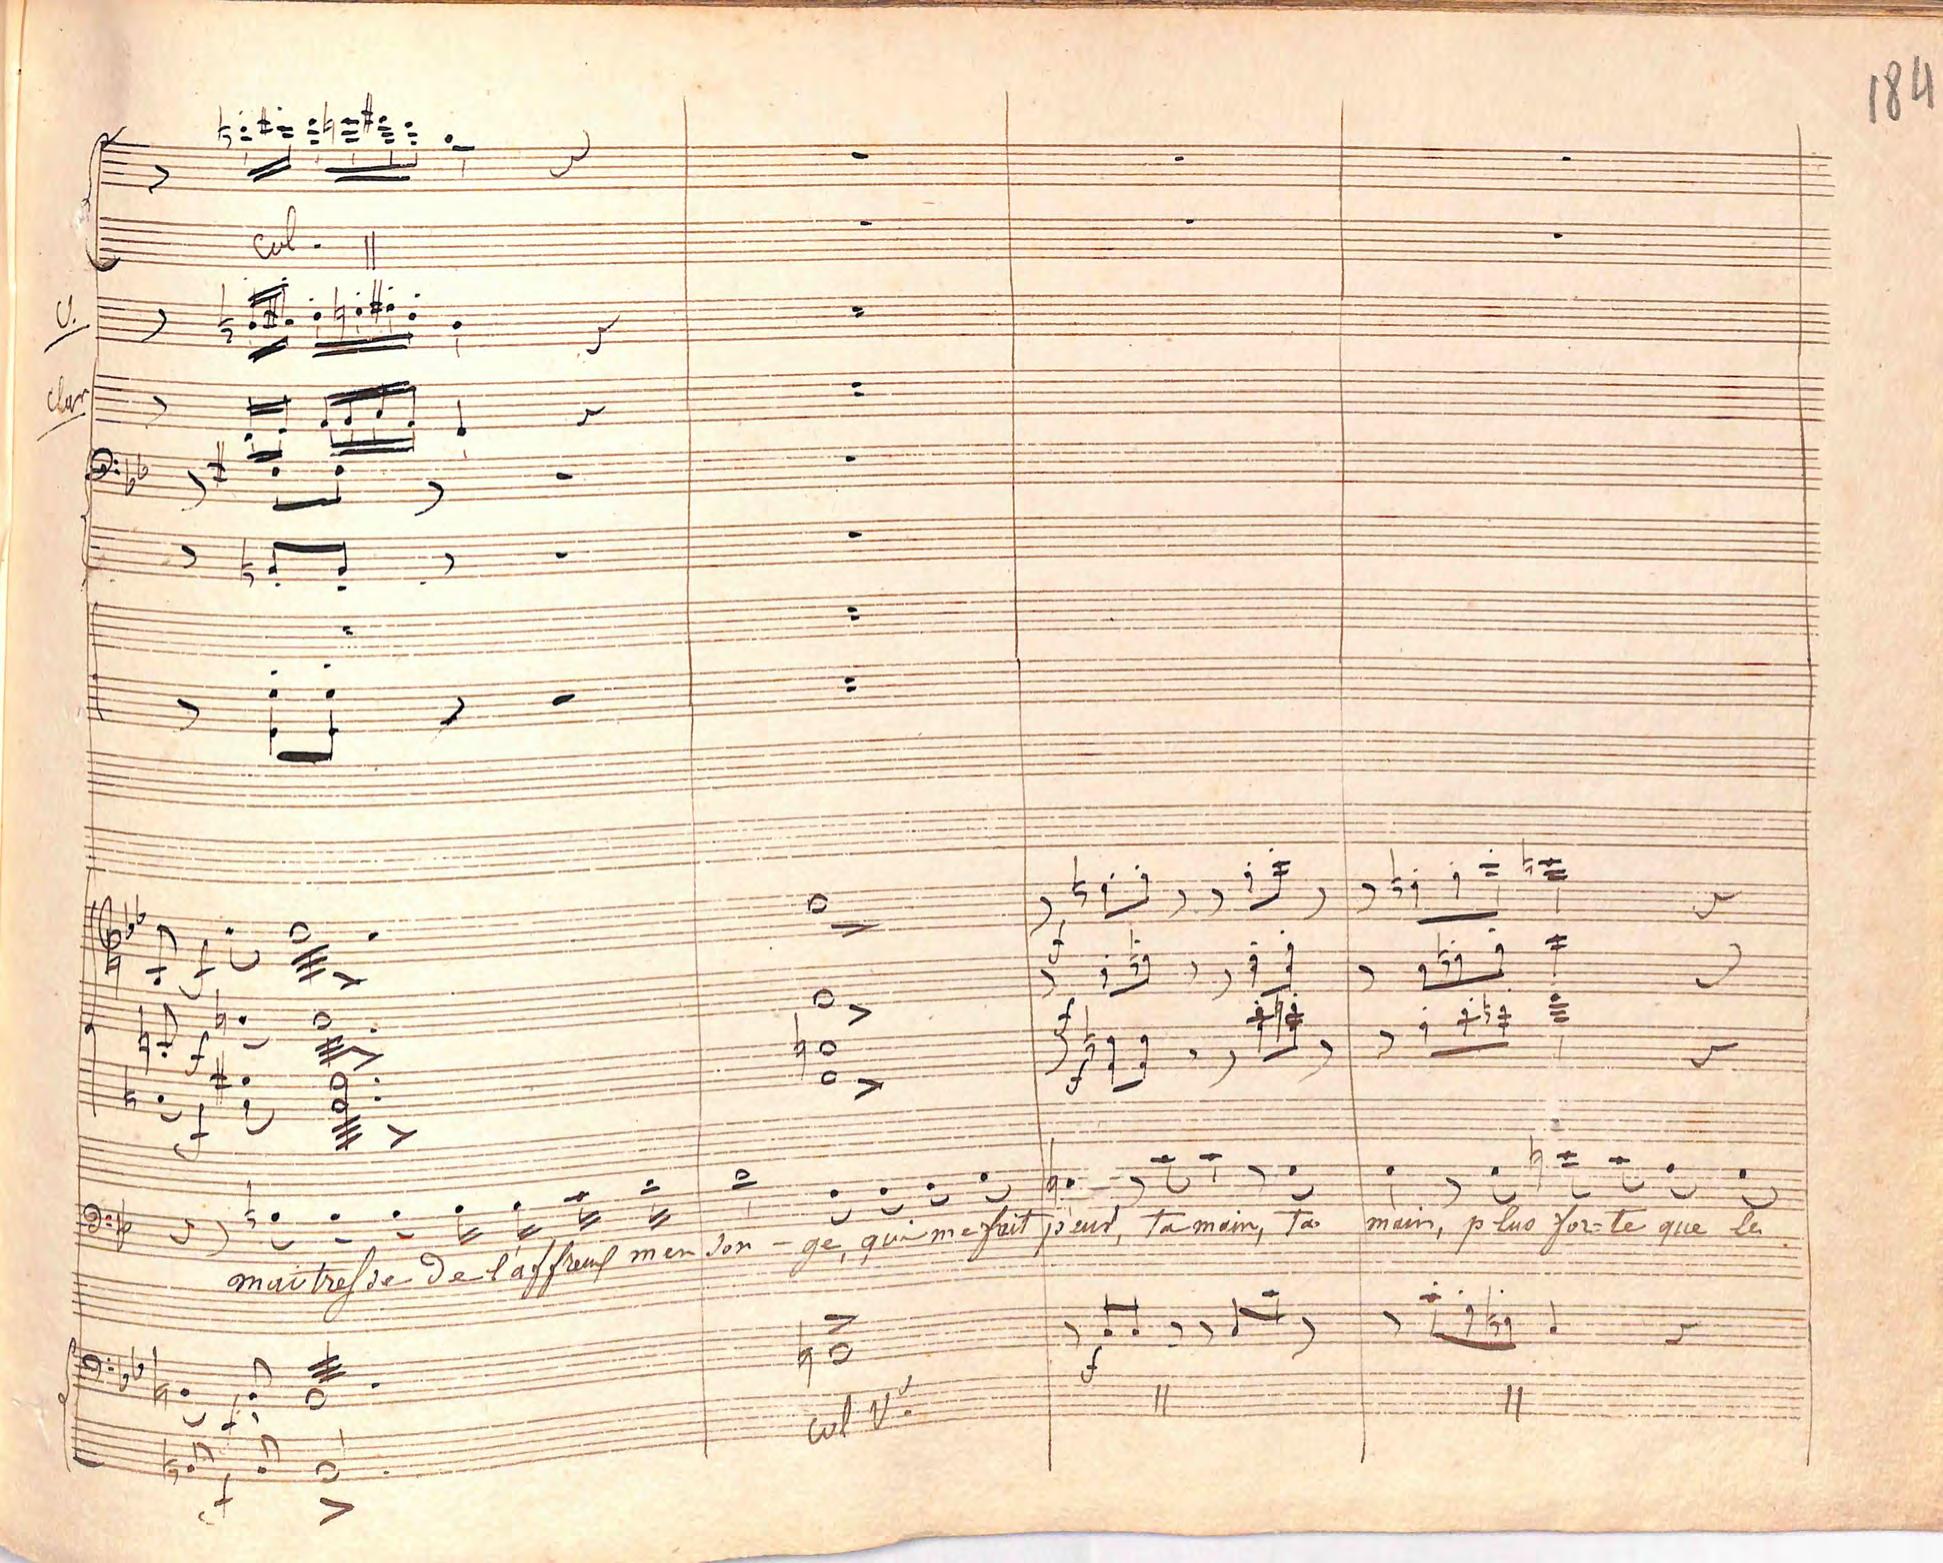 184
col.
Clar
f
f
f
f
f
f
maitresse de l'affreux menson-ge, qui me fait peur, ta main, ta main, plus for=te que le
f
f
col V.
f